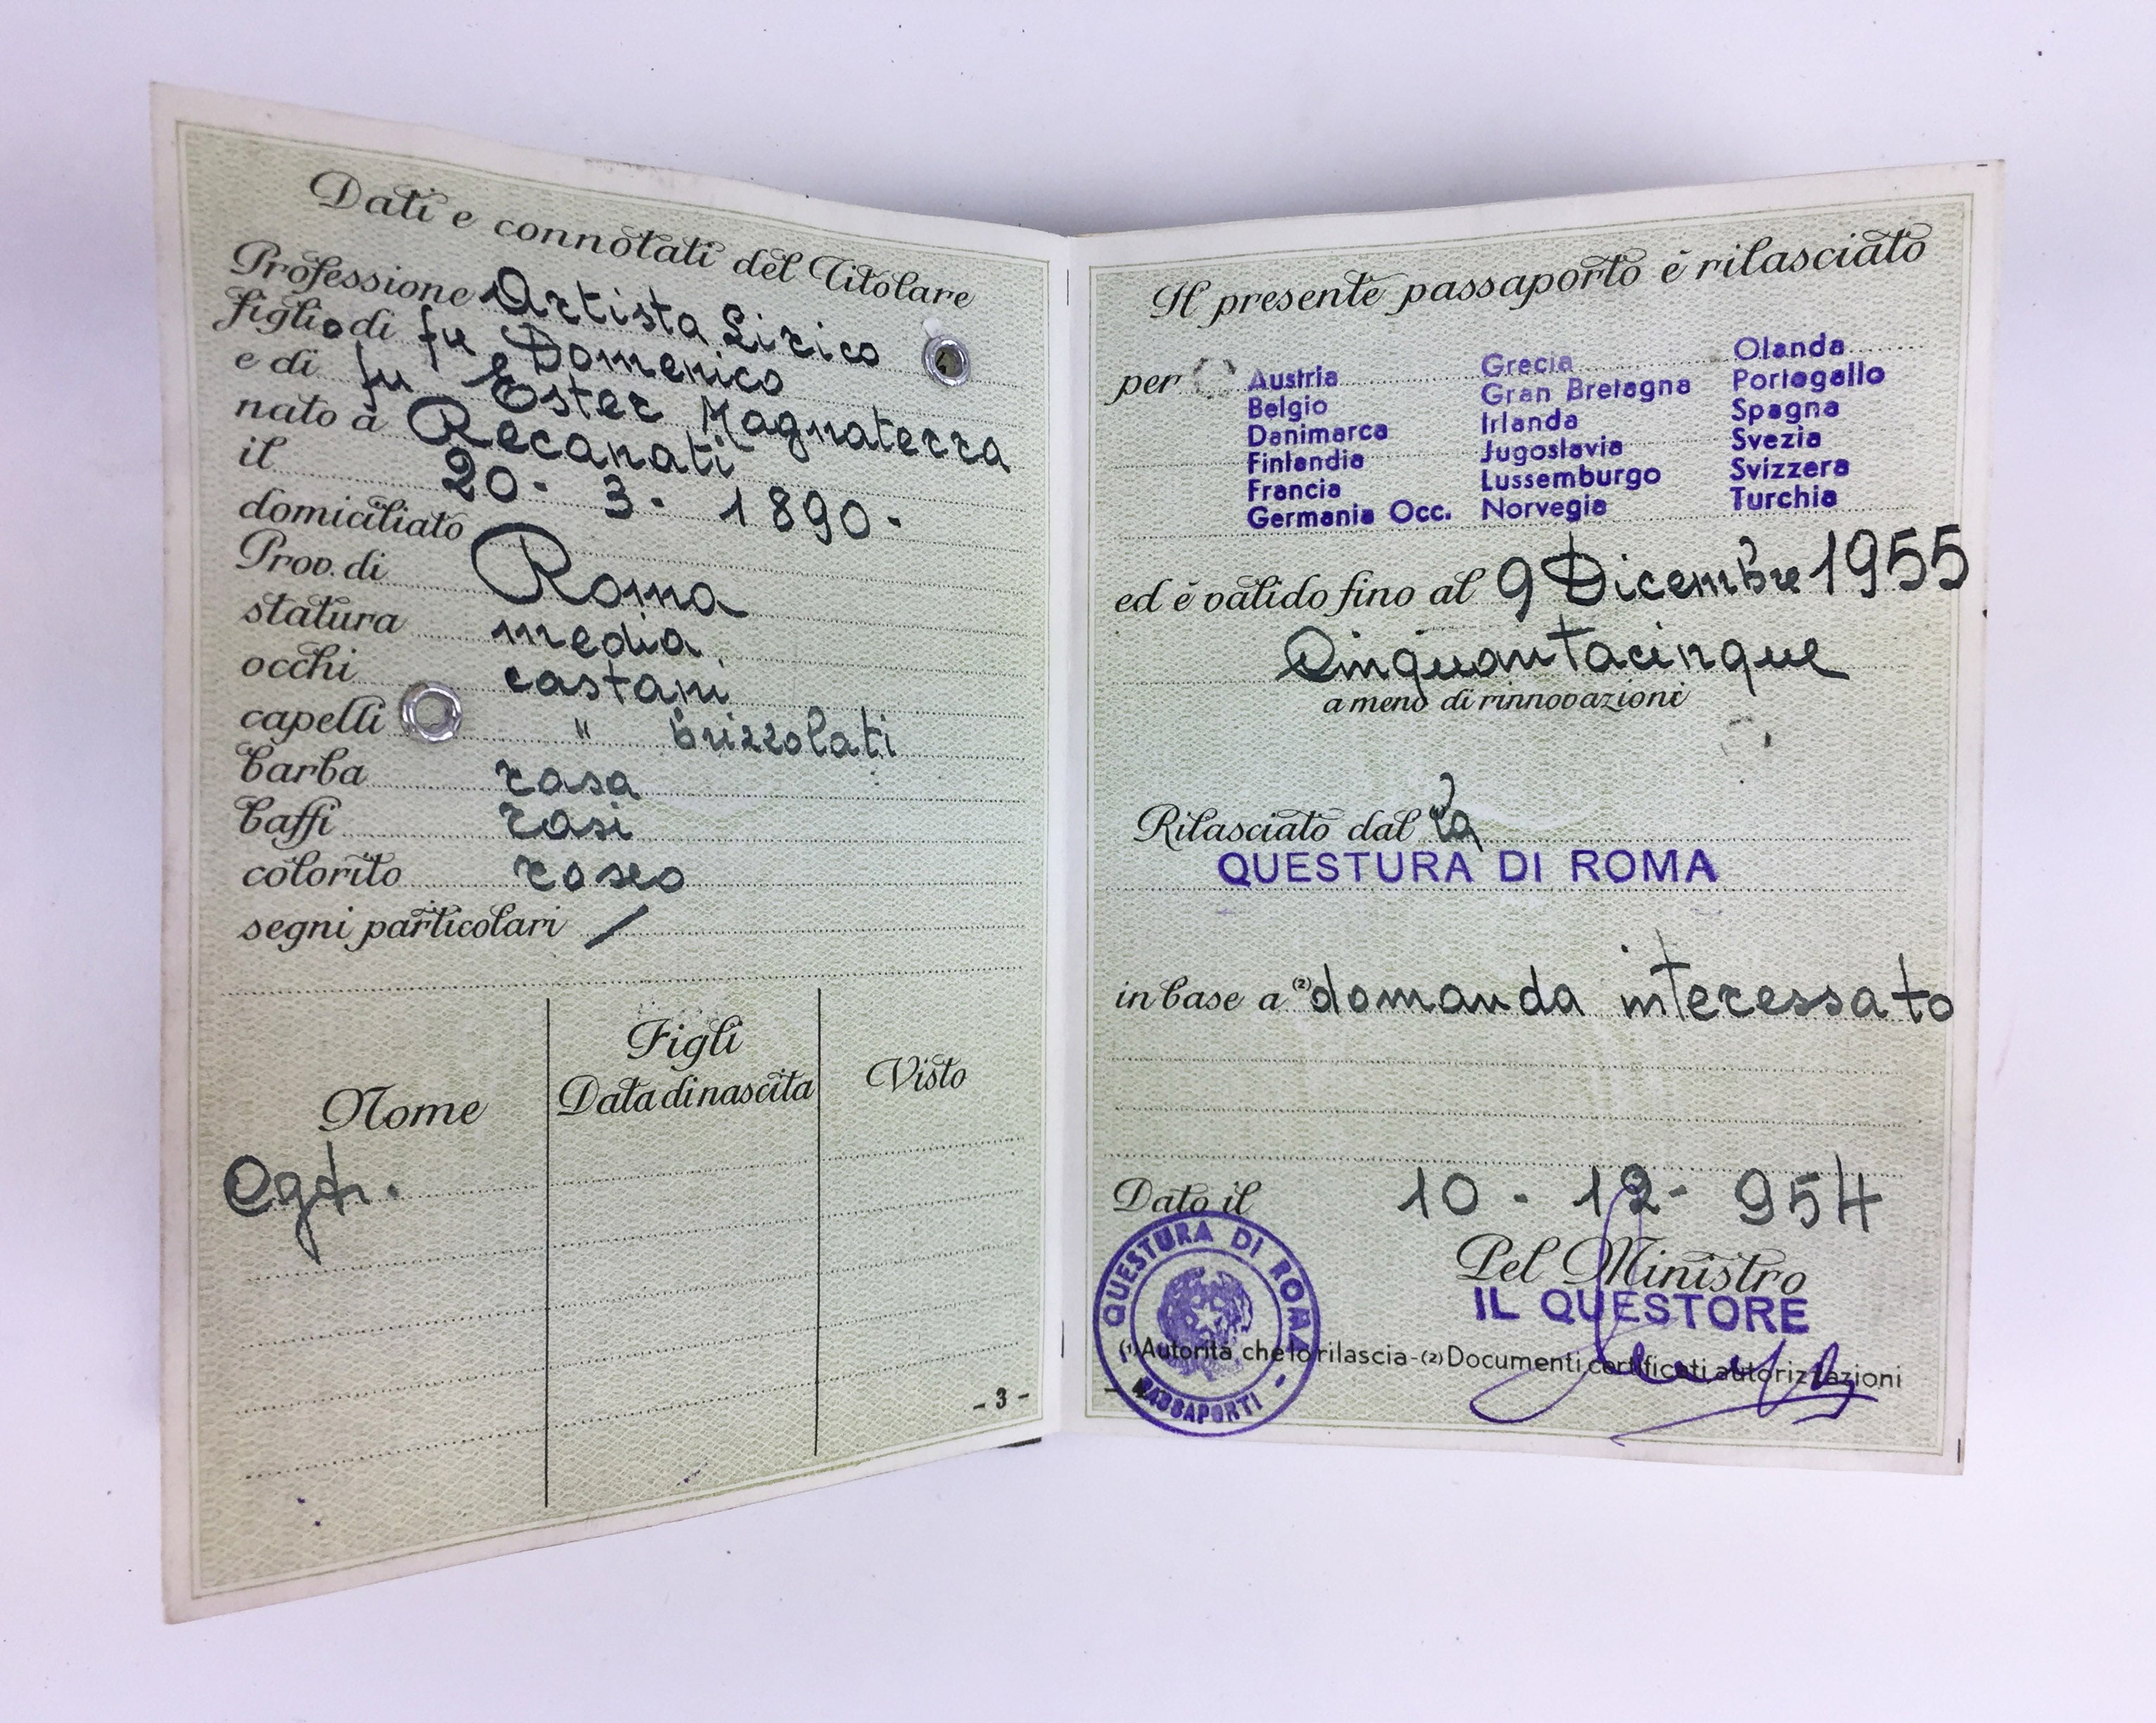 Dati e connotati del Titolare
Professione Artista Lirico
figlio di fu Domenico
e di fu Ester Magnaterra
nato a Recanati
il 20. 3. 1890.
domiciliato
Prov. di Roma
statura media
occhi castani
capelli " brizzolati
barba rasa
baffi rasi
colorito roseo
segni particolari /
Figli
Nome Data di nascita Visto
- 3 -
Il presente passaporto è rilasciato
per
Austria Grecia Olanda
Belgio Gran Bretagna Portogallo
Danimarca Irlanda Spagna
Finlandia Jugoslavia Svezia
Francia Lussemburgo Svizzera
Germania Occ. Norvegia Turchia
ed è valido fino al 9 Dicembre 1955
Cinquantacinque
a meno di rinnovazioni
Rilasciato dal la
QUESTURA DI ROMA
in base a (2) domanda interessato
Dato il 10 - 12 - 954
Pel Ministro
IL QUESTORE
QUESTURA DI ROMA
PASSAPORTI
(1) Autorità che lo rilascia - (2) Documenti certificati autorizzazioni